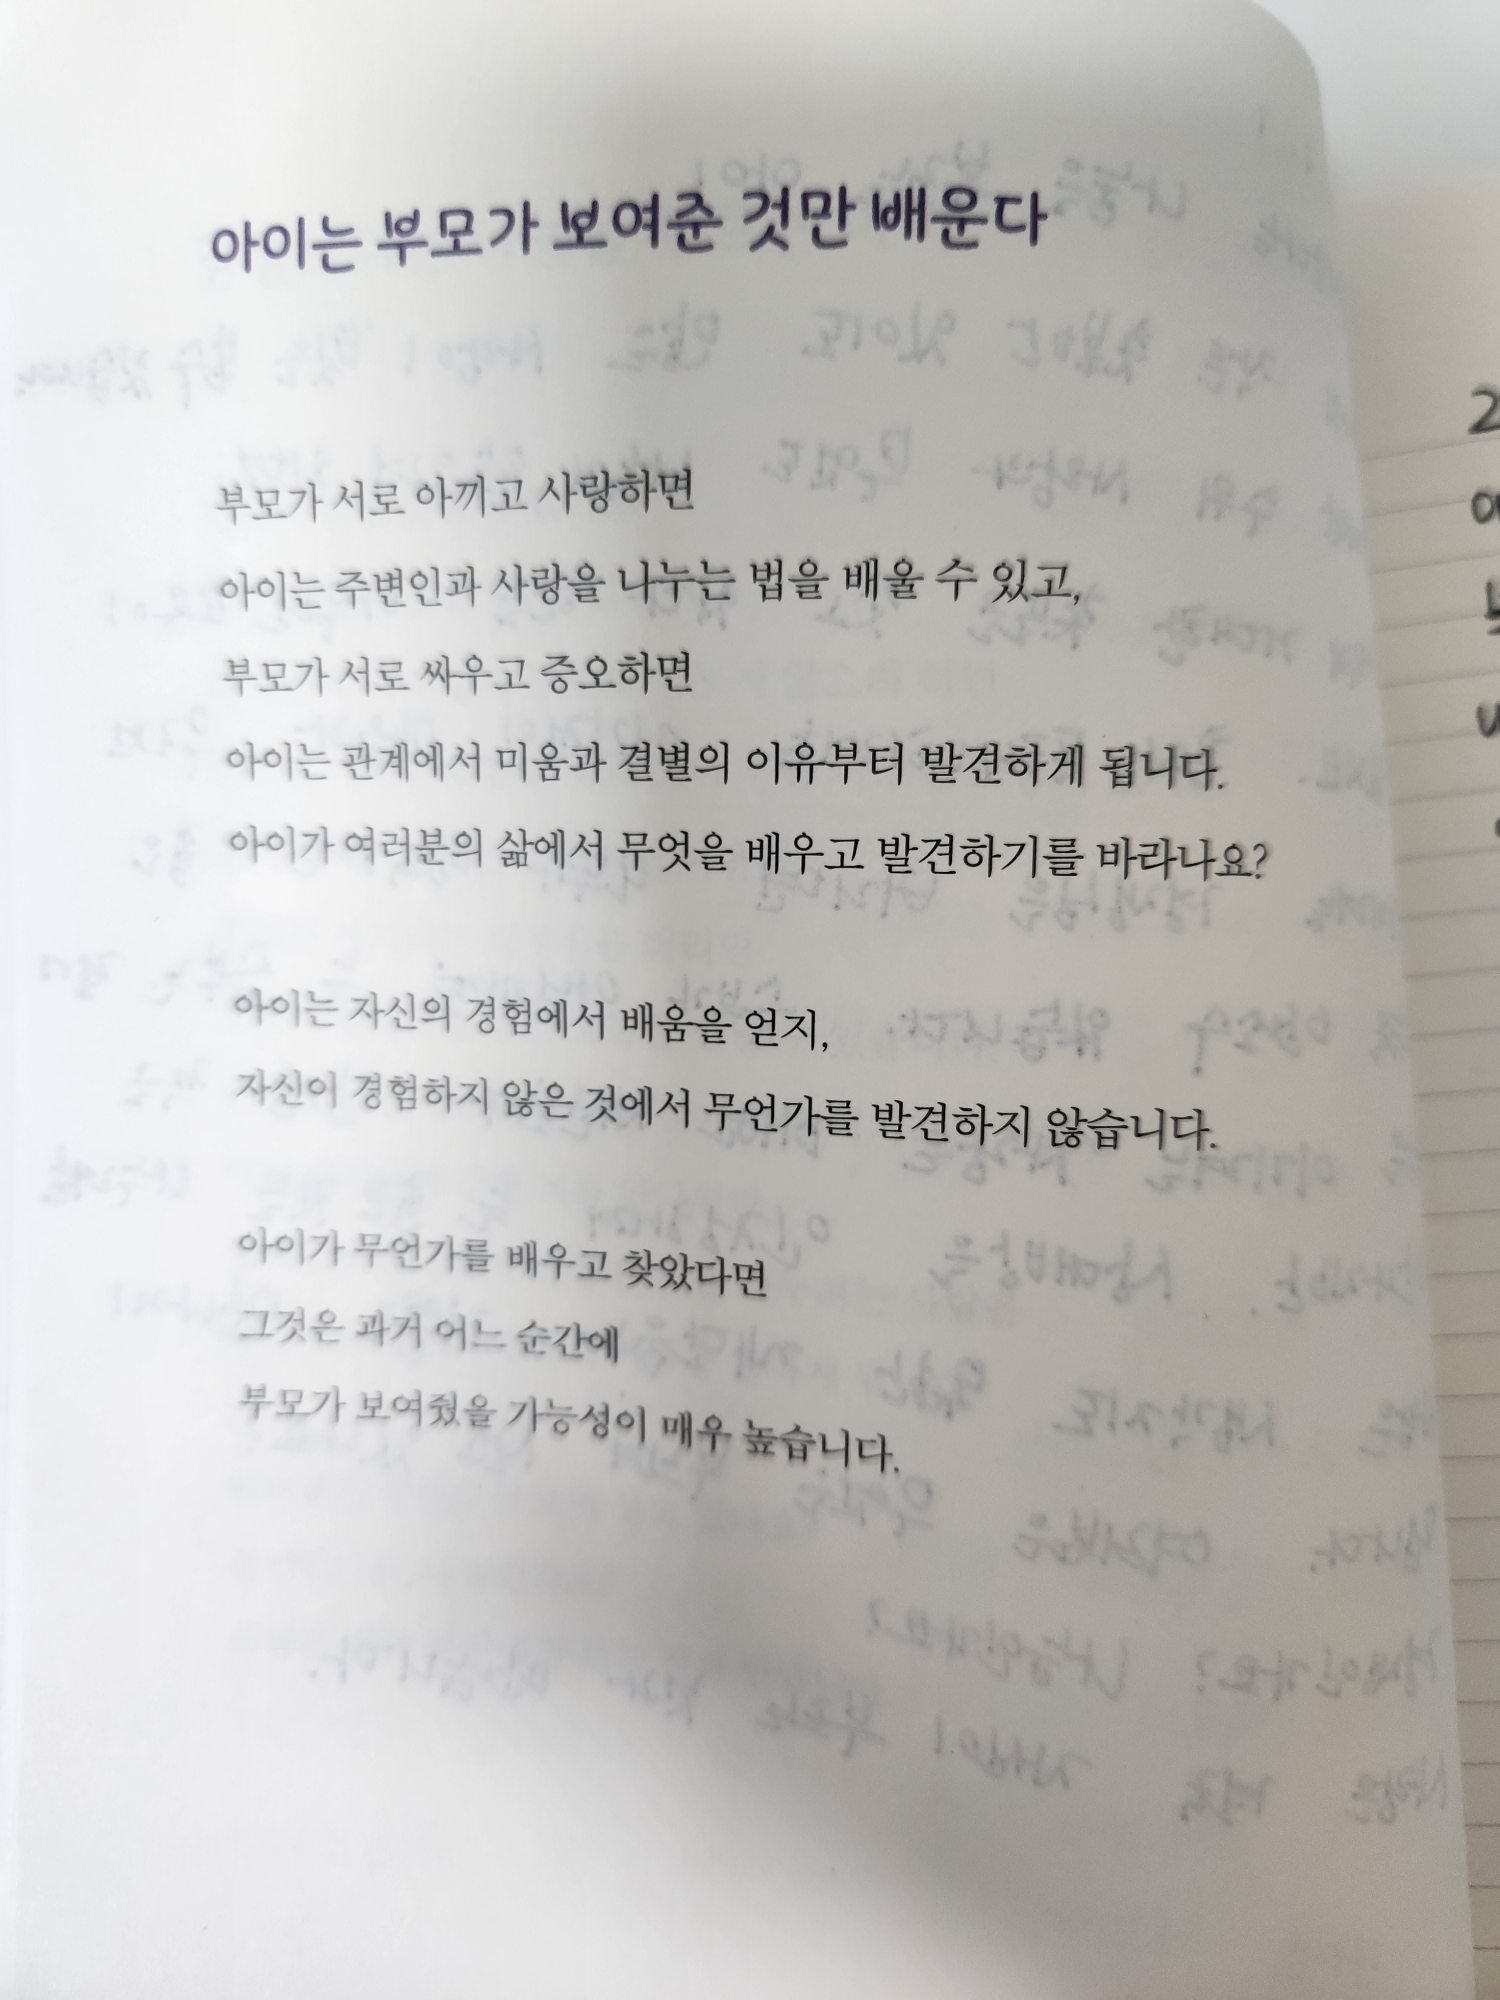 아이는 부모가 보여준 것만 배운다
부모가 서로 아끼고 사랑하면
아이는 주변인과 사랑을 나누는 법을 배울 수 있고,
부모가 서로 싸우고 증오하면
아이는 관계에서 미움과 결별의 이유부터 발견하게 됩니다.
아이가 여러분의 삶에서 무엇을 배우고 발견하기를 바라나요?
아이는 자신의 경험에서 배움을 얻지,
자신이 경험하지 않은 것에서 무언가를 발견하지 않습니다.
아이가 무언가를 배우고 찾았다면
그것은 과거 어느 순간에
부모가 보여줬을 가능성이 매우 높습니다.